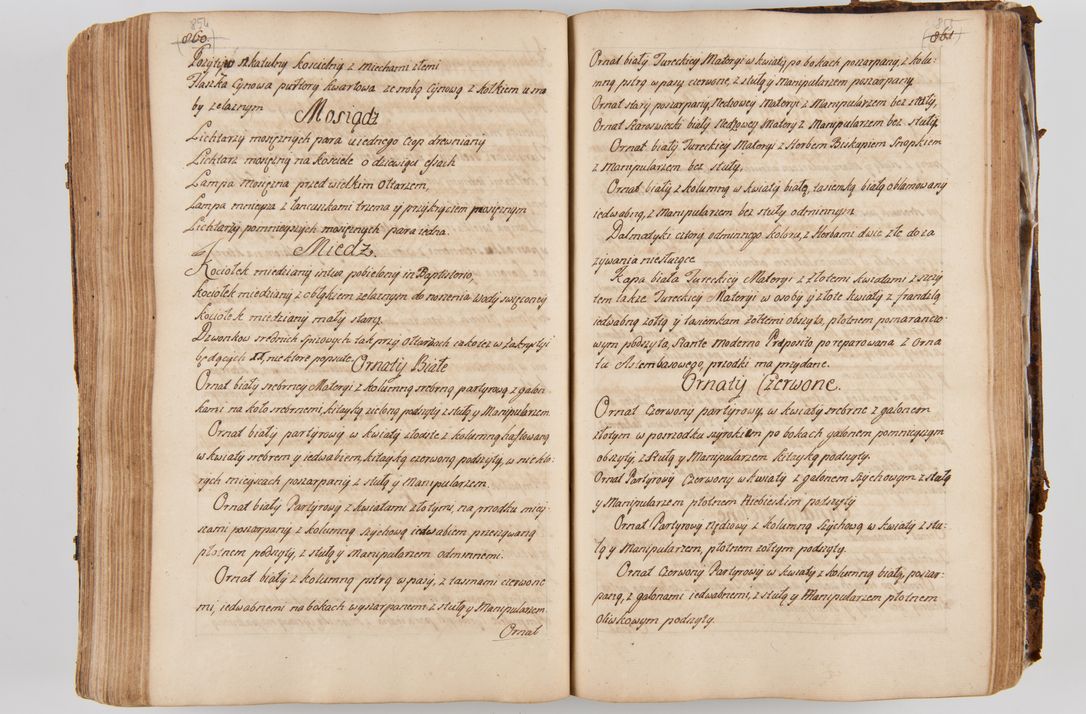 854
860
Pozytyw szkatulny koscielny z miechami złemi
Flaszka Cynowa pułtory kwartowa ze srobą Cynową z kołkiem u sro
by zelaznym
Mosiądz
Lichtarzy mosięznych para u iednego Czop drewniany
Lichtarz mosięzny na kościele o dziewięci
Lampa mosięzna przed wielkim Ołtarzem,
Lampa mnieysza z łancuszkami trzema y przykryciem mosięznym
Lichtarzy pomnieyszych mosięznych para iedna.
Miedz.
Kociołek miedziany intus pobielony in Baptisterio,
Kociołek miedziany z obłąkiem zelaznym do noszenia Wody swięconey
Kociołek miedziany mały stary.
Dzwonkow srednich spizowych tak przy Ołtarzach iako tez w Zakrystyi
będących niektore popsute.
Ornaty Białe
Ornat biały srebrney Materyi z kolumną srebrną partyrową z galon
kami na koło srebrnemi, kitayką zieloną podszyty z stułą y Manipularzem
Ornat biały partyrowy w kwiaty złodite z kolumną haftowaną
w kwiaty srebrem y iedwabiem, kitayką czerwoną podszyty, w niekto:
rych mieyscach poszarpany z stułą y Manipularzem
Ornat biały Partyrowy z kwiatami złotym, na przodku miey
scami poszarpany z kolumną szychową iedwabiem przeszywaną
płotnem podszyty, z stułą y Manipularzem odmiennemi.
Ornat biały z kolumną pstrą w pasy, z tasmami czerwone
mi, iedwabnemi na bokach wyszarpanemi z stułą y Manipularzem
Ornat
861
Ornat biały Tureckiey Materyi w kwiaty, po bokach poszarpany z kolu:
mną pstrą w pasy czerwone, z stułą y Manipularzem poszarpany
Ornat stary poszarpany, Nedzowey Materyi z Manipularzem bez stuły,
Ornat staroswiecki biały Nedzowey Matery z Manipularzem bez stuły.
Ornat biały Tureckiey Materyi z Herbem Biskupiem Snopkiem
z Manipularzem bez stuły,
Ornat biały z kolumną w kwiaty białą, tasiemką białą obłamowany
iedwabną, z Manipularzem bez stuły odmiennym
Dalmatyki cztery odmiennego koloru, z Herbami dwie złe do za
zywania niesłuzące
Kapa biała Tureckiey Materyi z złotemi kwiatami z szczy
tem takze Tureckiey Materyi w osoby y złote kwiaty z frandzlą
iedwabną zołtą y tasiemkam zołtemi obszyta, płotnem pomaranczo:
wym podszyta, stante moderno Præposito poreparowana z Orna
tu Axembasowego, przodki ma przydane.
Ornaty Czerwone.
Ornat Czerwony partyrowy, w kwiaty srebrne z galonem
złotym w posrzodku szyrokiem po bokach galonem pomnieyszym
obszyty, z Stułą y Manipularzem kitayką podszyty.
Ornat Partyrowy Czerwony w kwiaty z galonem Szychowym z stułą
y Manipularzem płotnem Niebieskim podszyty
Ornat Partyrowy Ryzowy z kolumną Szychową w kwiaty z stu:
łą y Manipularzem, płotnem zołtym podszyty.
Ornat Czerwony Partyrowy w kwiaty z kolumną białą, poszar:
paną, z galonami iedwabnemi, z stułą y Manipularzem płotnem
Oliwkowym podszyty.